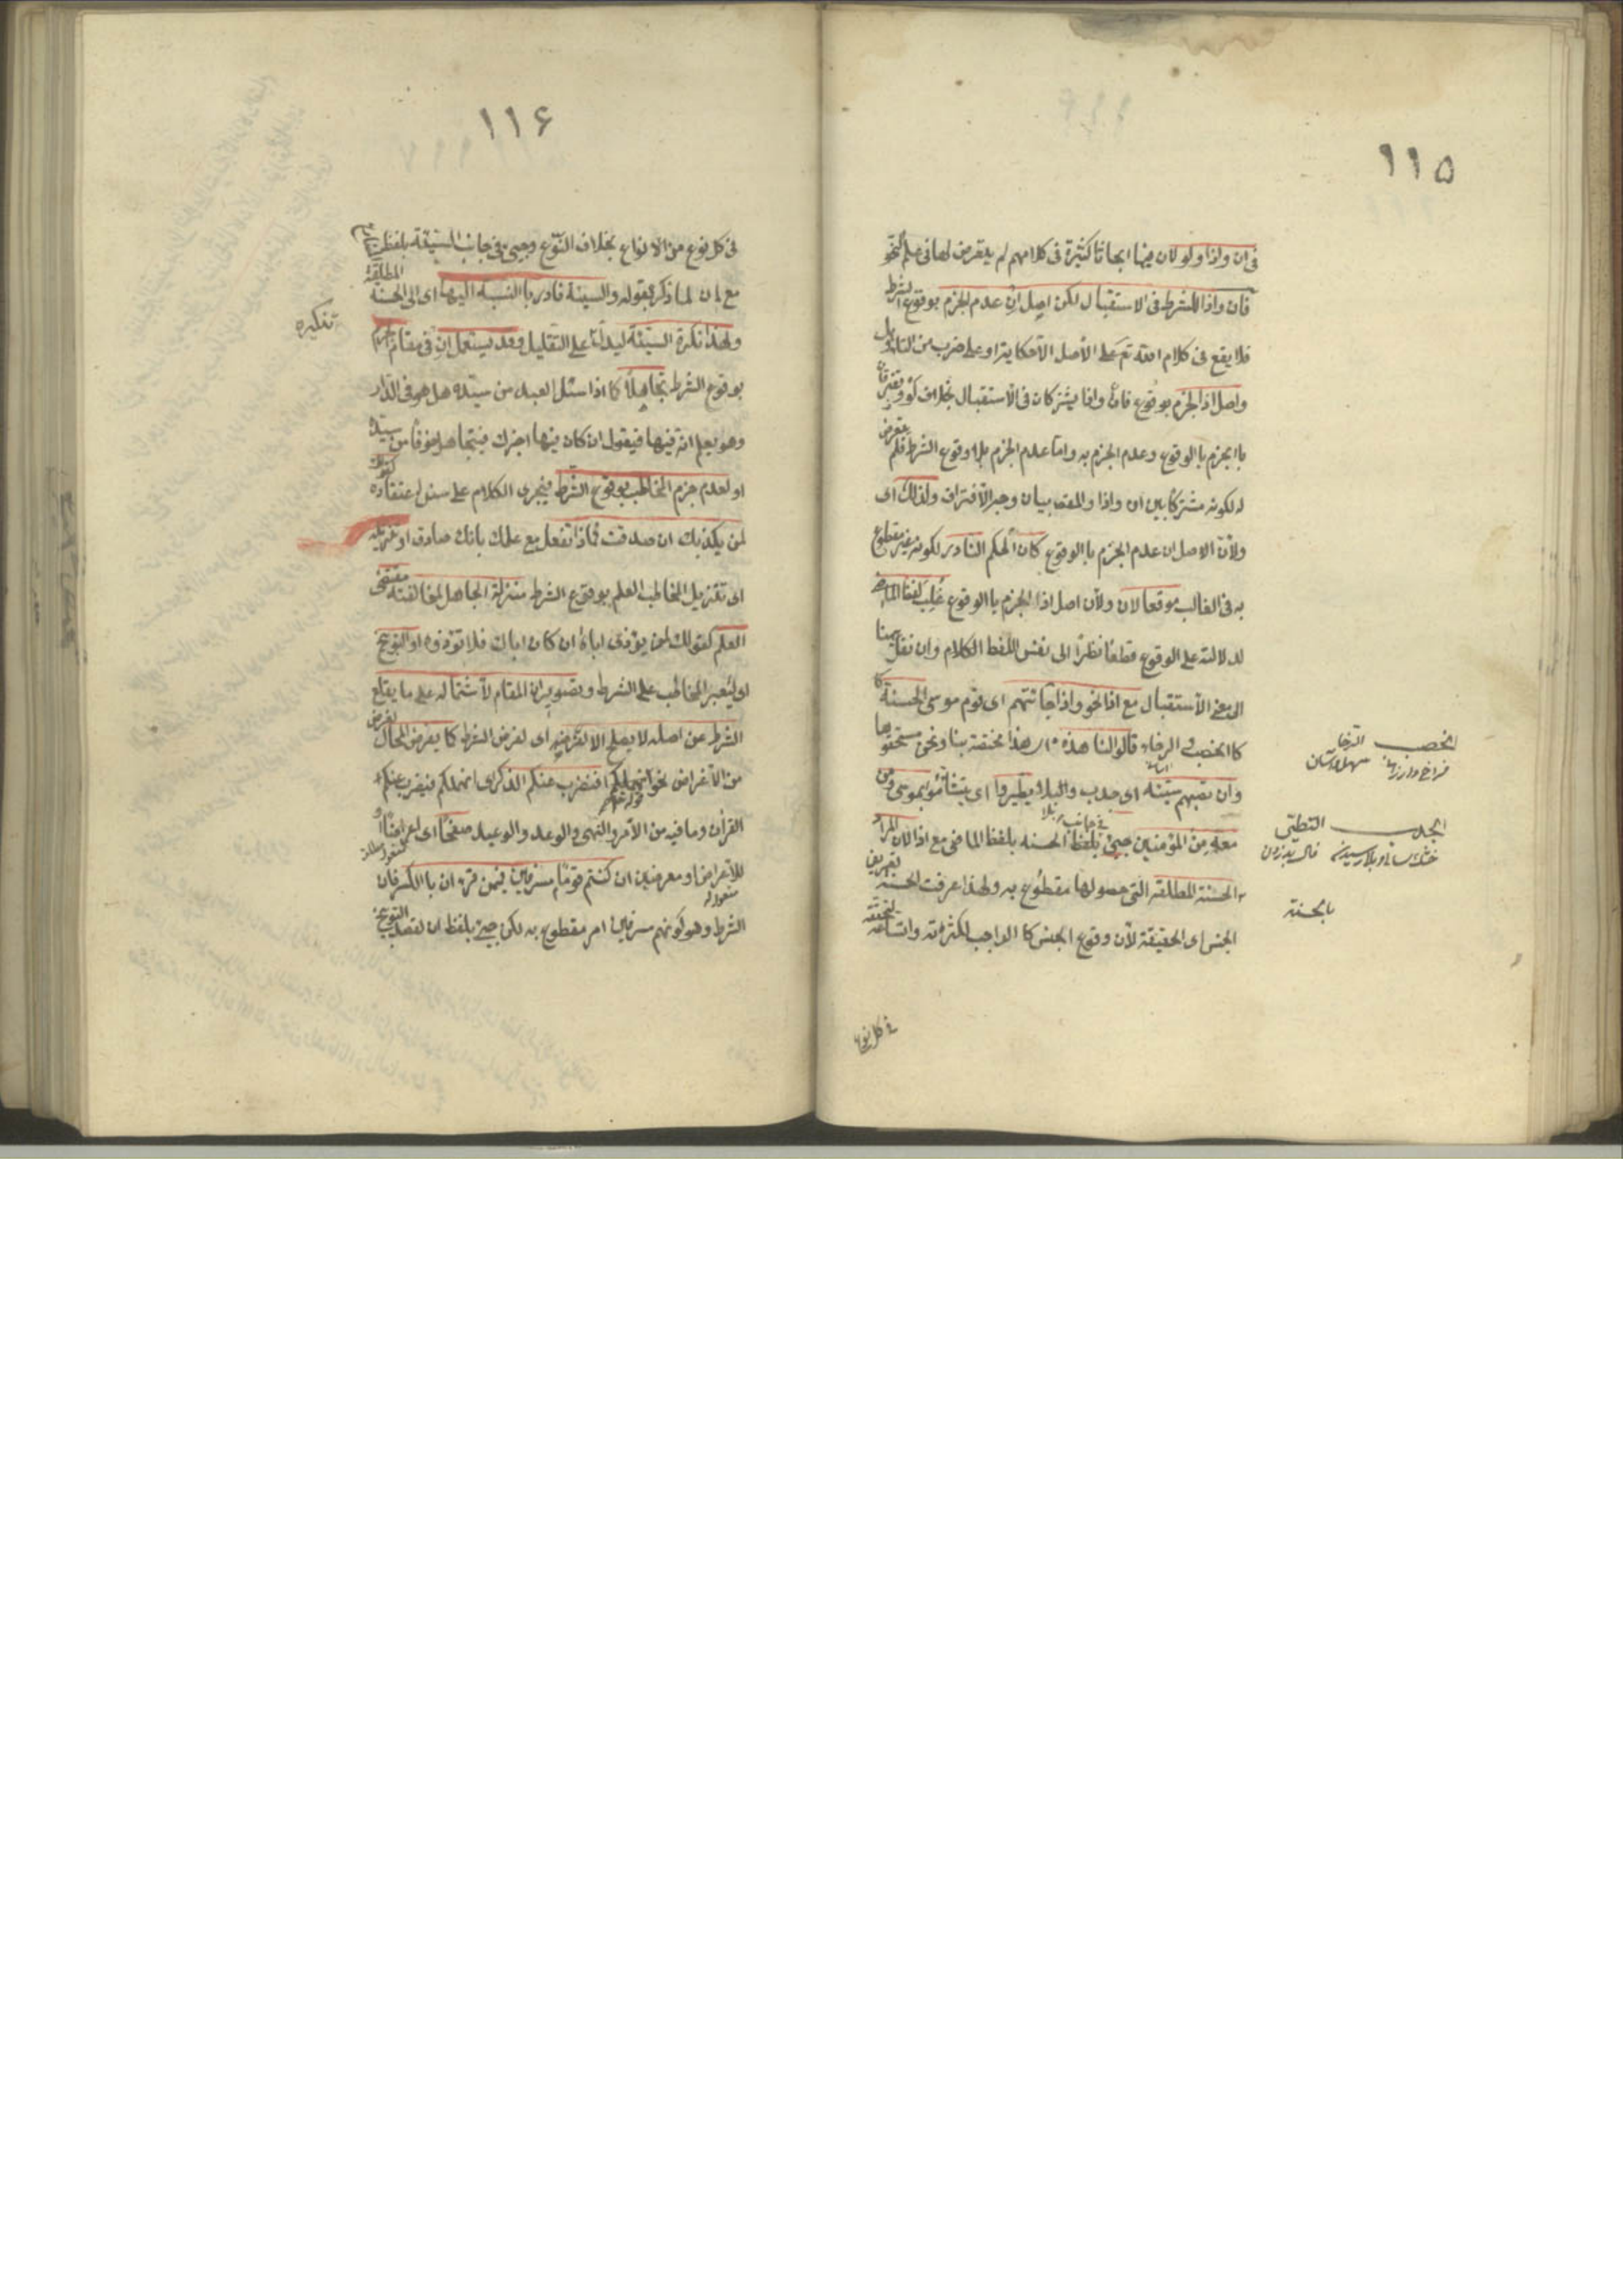 ١١۵
فى ان واذا ولو لان فيها ابحاثا كثيرة فى كلامهم لم يتعرض لها فى علم النحو
فان واذا للشرط فى الاستقبال لكن اصل ان عدم الجزم بوقوع الشرط
فلا يقع فى كلام الله تع على الأصل الا حكاية او على ضرب من التاويل
واصل اذا الجزم بوقوعه فان واذا يشتركان فى الأستقبال بخلاف لو ويفترقان
باالجزم باالوقوع وعدم الجزم به واما عدم الجزم بلا وقوع الشرط فلم يتعرض
له لكونه مشتركا بين ان واذا والمقصد بيان وجه الأفتراق ولذلك اى
ولأن الاصل ان عدم الجزم باالوقوع كان الحكم النادر لكونه غير مقطوع
به فى الغالب موقعا لان ولأن اصل اذا الجزم باالوقوع غلب لفظ الماضى
لدلالته على الوقوع قطعا نظرا الى نفس اللفظ الكلام وان نقل هيهنا
الى معنى الأستقبال مع اذا نحو واذا جائتهم اى قوم موسى الحسنة كا
كاالخصب و الرخاء قالوا لنا هذه اى هذا مختصة بنا ونحن مستحقوها
وان تصبهم سيئة اى جدب والبلاء يطيروا اى يتشائموا بموسى ومن
معه من المؤمنين جيئ بلفظ الحسنه بلفظ الماضى مع اذا لان المراد
فى جانب
الحسنة المطلقة التى حصولها مقطوع به ولهذا عرفت الحسنة تعريف
الجنس اى الحقيقة لأن وقوع الجنس كا الواجب لكثرته واتساعه لتحققه
فى كل نوع
الخصب الرخا
الجدب القحطى
باالحسنة
١١۶
فى كل نوع من الانواع بخلاف النوع وجيئ فى جانب السيئة بلفظ
مع ان لما ذكره بقوله والسيئة نادر باالنسبة اليها اى الى الحسنة المطلقة
ولهذا نكرة السيئة ليدل على التقليل وقد يستعمل ان فى مقام الجزم
تنكيره
بوقوع الشرط تجاهلا كا اذا سئل العبد من سيده هل هو فى الدار
وهو يعلم انه فيها فيقول ان كان فيها اخبرك فيتجاهل خوفا من سيده
او لعدم جزم المخاطب بوقوع الشرط فيجرى الكلام على سنن اعتقاده كقولك
لمن يكذبك ان صدقت فماذا تفعل مع علمك بانك صادق او تنزيله
اى تنزيل المخاطب العلم بوقوع الشرط منزلة الجاهل لمخالفته مقتضى
العلم كقولك لمن يؤذى اباه ان كان اباك فلا تؤذوه او التوبيخ
اى ليعير المخاطب على الشرط وتصوير ان المقام لأشتماله على ما يقلع
الشرط عن اصله لا يصلح الا لفرضه اى لفرض الشرط كا يفرض المحال لغرض
من الأغراض نحو انهملكم افنضرب عنكم الذكر اى انهملكم فنضرب عنكم
القرأن وما فيه من الأمر والنهى والوعد والوعيد صفحًا اى اعراضًا او
للاعراض او معرضين ان كنتم قومًا مسرفين فيمن قرء ان باالكسر فان
الشرط وهو كونهم مسرفين امر مقطوع به لكن جيئ بلفظ ان لقصد التوبيخ